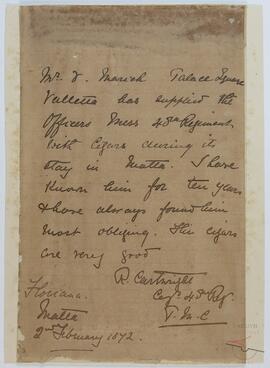 Mr. V. Marich Palace Square
Valletta has supplied the
Officers Mess 43rd Regiment
with Cigars during its
stay in Malta. I have
known him for ten years
& have always found him
most obliging. His cigars
are very good
R. Cartwright
Capt. 43rd Reg.
P. M. C
Floriana.
Malta
2nd February 1872.